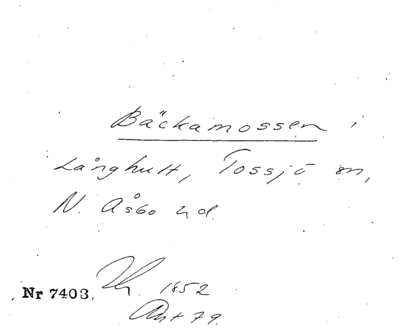 Bäckamossen i
Långhult, Tossjö sn,
N. Åsbo hd.
Nr 7403. 1852
Ant 79.